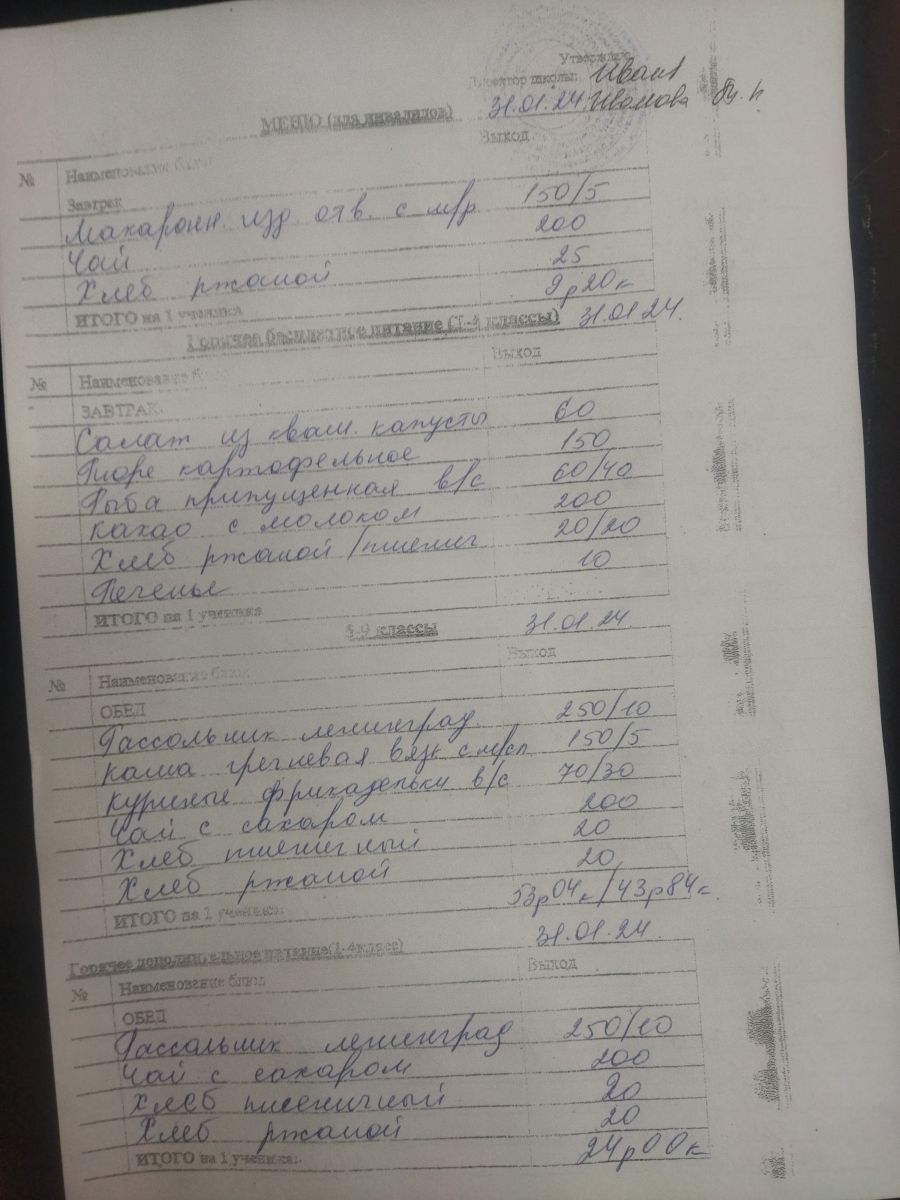 Утверждаю
Директор школы:
31.01.24. Иванова
МЕНЮ (для инвалидов)
№ Наименование блюд Выход
Завтрак
Макарон. изд отв. с м/р 150/5
Чай 200
Хлеб ржаной 25
ИТОГО на 1 ученика 9р20к
Горячее бесплатное питание (1-4 классы) 31.01.24.
№ Наименование блюд Выход
ЗАВТРАК
Салат из кваш. капусты 60
Пюре картофельное 150
Рыба припущенная в/с 60/40
Какао с молоком 200
Хлеб ржаной/пшенич 20/20
Печенье 10
ИТОГО на 1 ученика
5-9 классы 31.01.24.
№ Наименование блюд Выход
ОБЕД
Рассольник ленинград. 250/10
Каша гречневая вязк с м/сл 150/5
Куриные фрикадельки в/с 70/30
Чай с сахаром 200
Хлеб пшеничный 20
Хлеб ржаной 20
ИТОГО на 1 ученика: 53р04к/43р84к
31.01.24.
Горячее дополнительное питание(1-4класс)
№ Наименование блюд Выход
ОБЕД
Рассольник ленинград 250/10
Чай с сахаром 200
Хлеб пшеничный 20
Хлеб ржаной 20
ИТОГО на 1 ученика: 24р00к